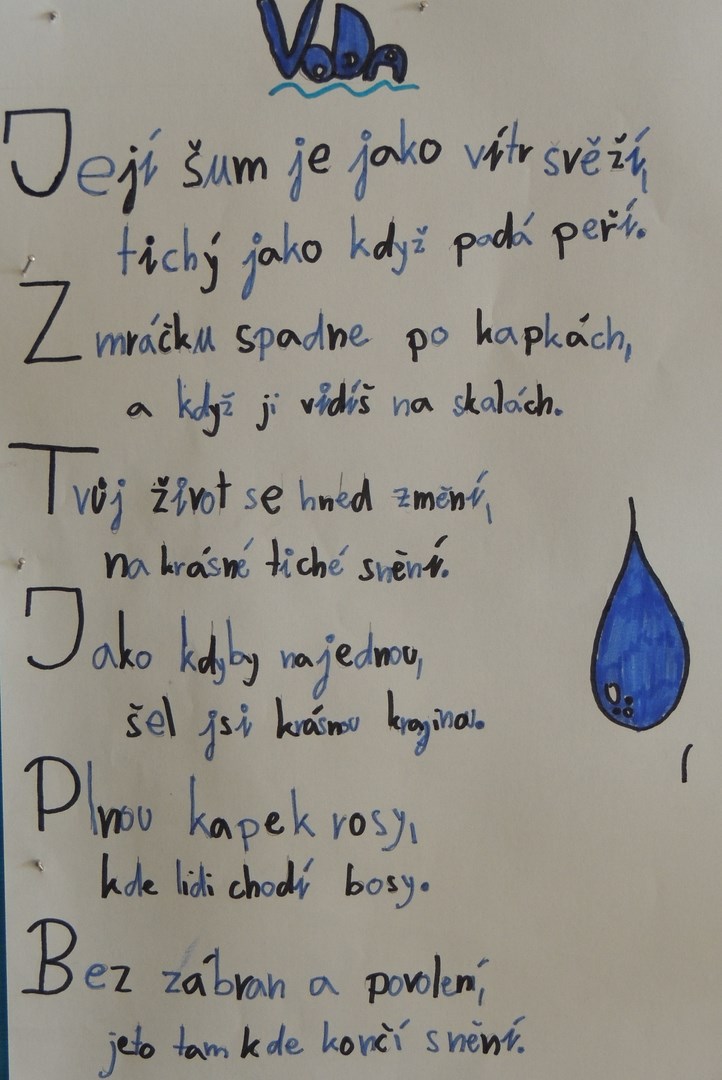 VODA
Její šum je jako vítr svěží,
tichý jako když padá peří.
Z mráčku spadne po kapkách,
a když ji vidíš na skalách.
Tvůj život se hned změní,
na krásné tiché snění.
Jako kdyby najednou,
šel jsi krásnou krajinou.
Plnou kapek rosy,
kde lidi chodí bosy.
Bez zábran a povolení,
jeto tam kde končí snění.